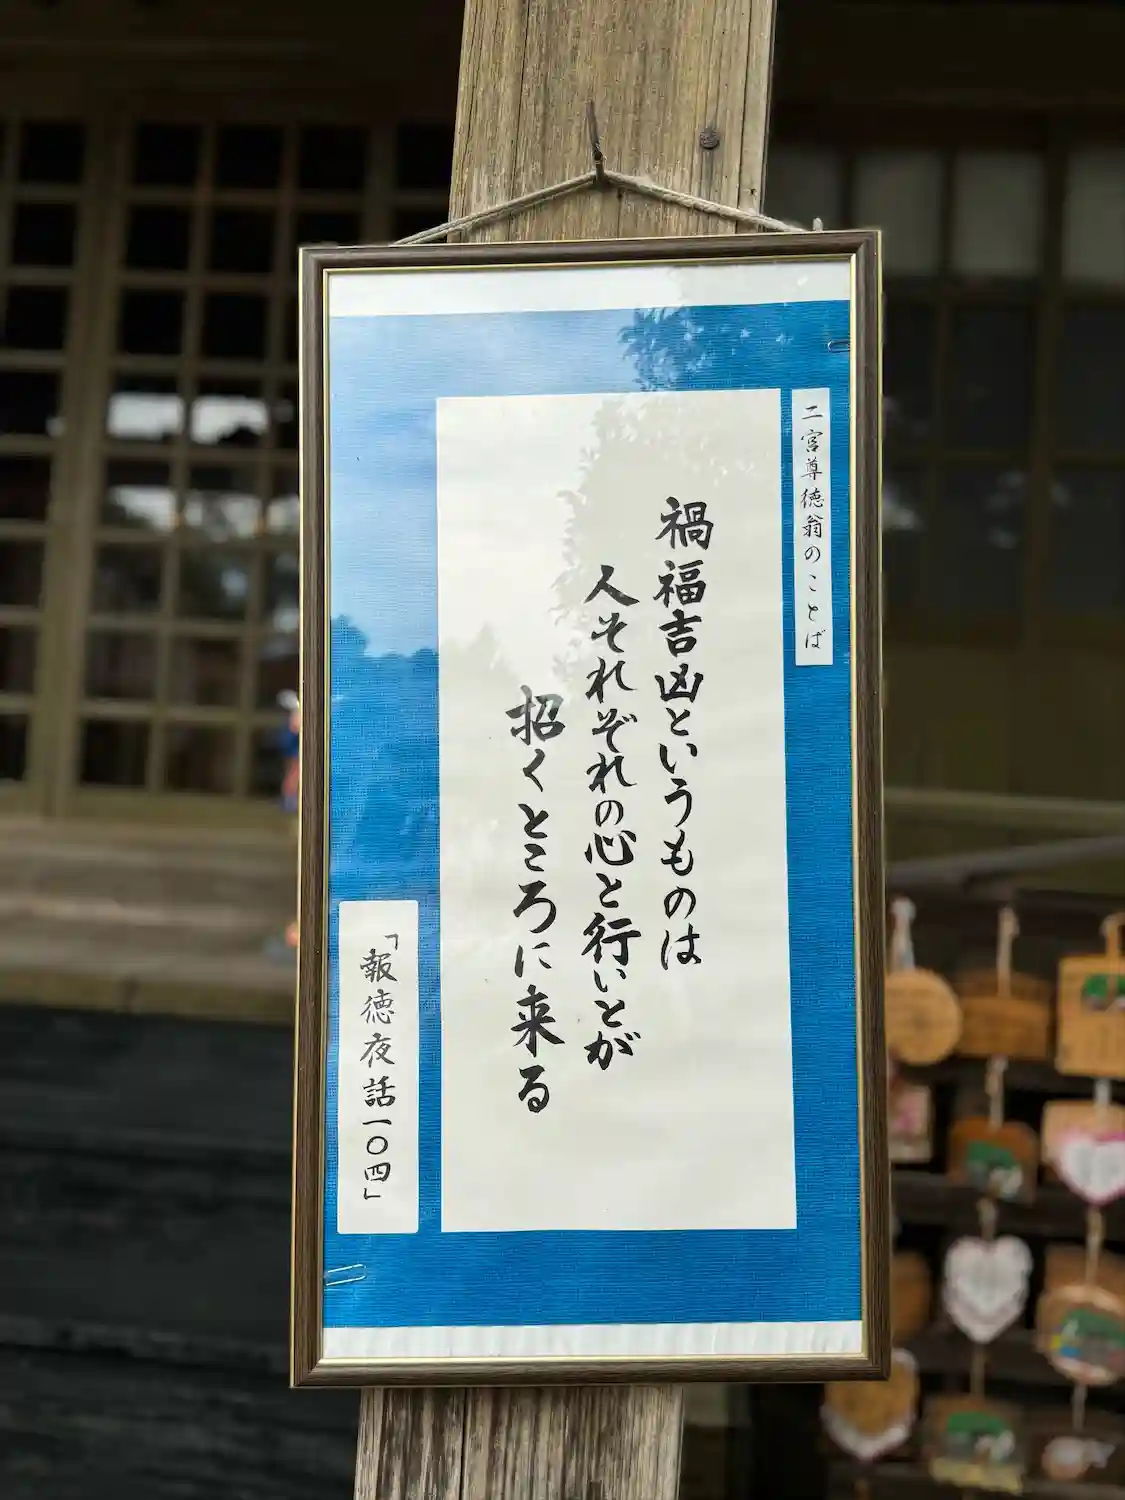 二宮尊徳翁のことば
禍福吉凶というものは
人それぞれの心と行いとが
招くところに来る
「報徳夜話一〇四」